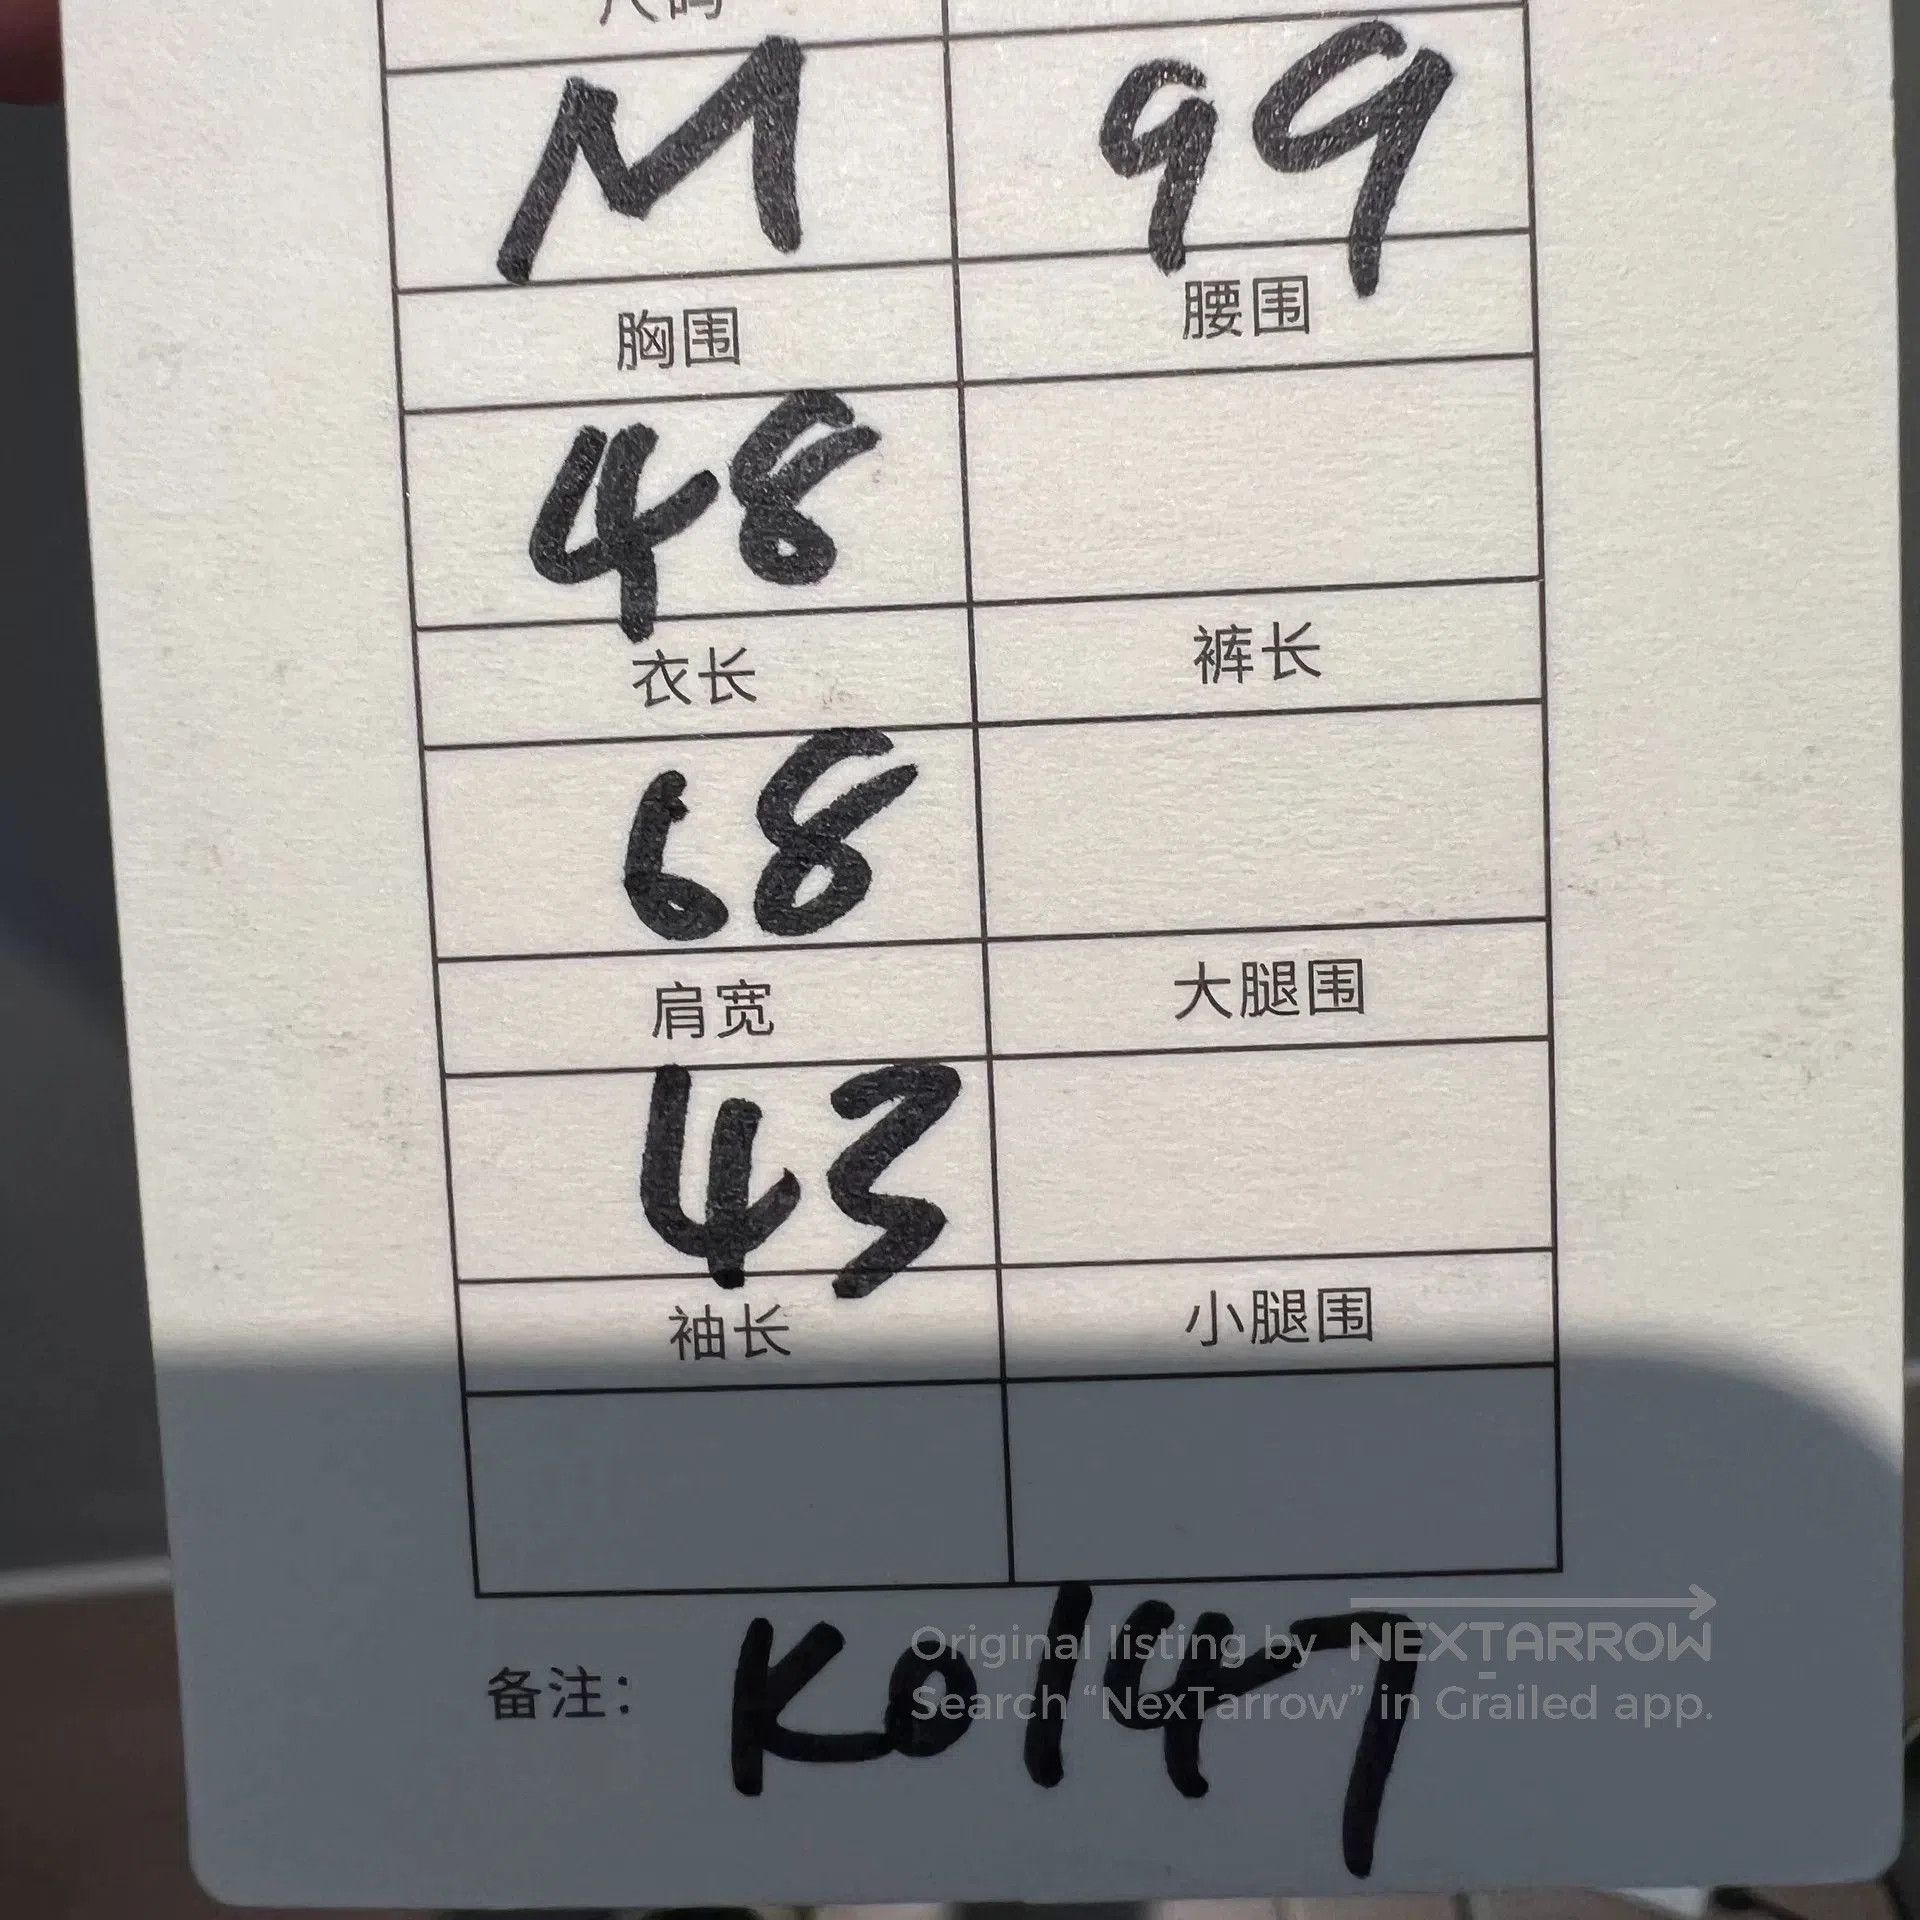 尺码
M 99
胸围 腰围
48
衣长 裤长
68
肩宽 大腿围
43
袖长 小腿围
备注: K0147
Original listing by NEXTARROW
Search “NexTarrow” in Grailed app.